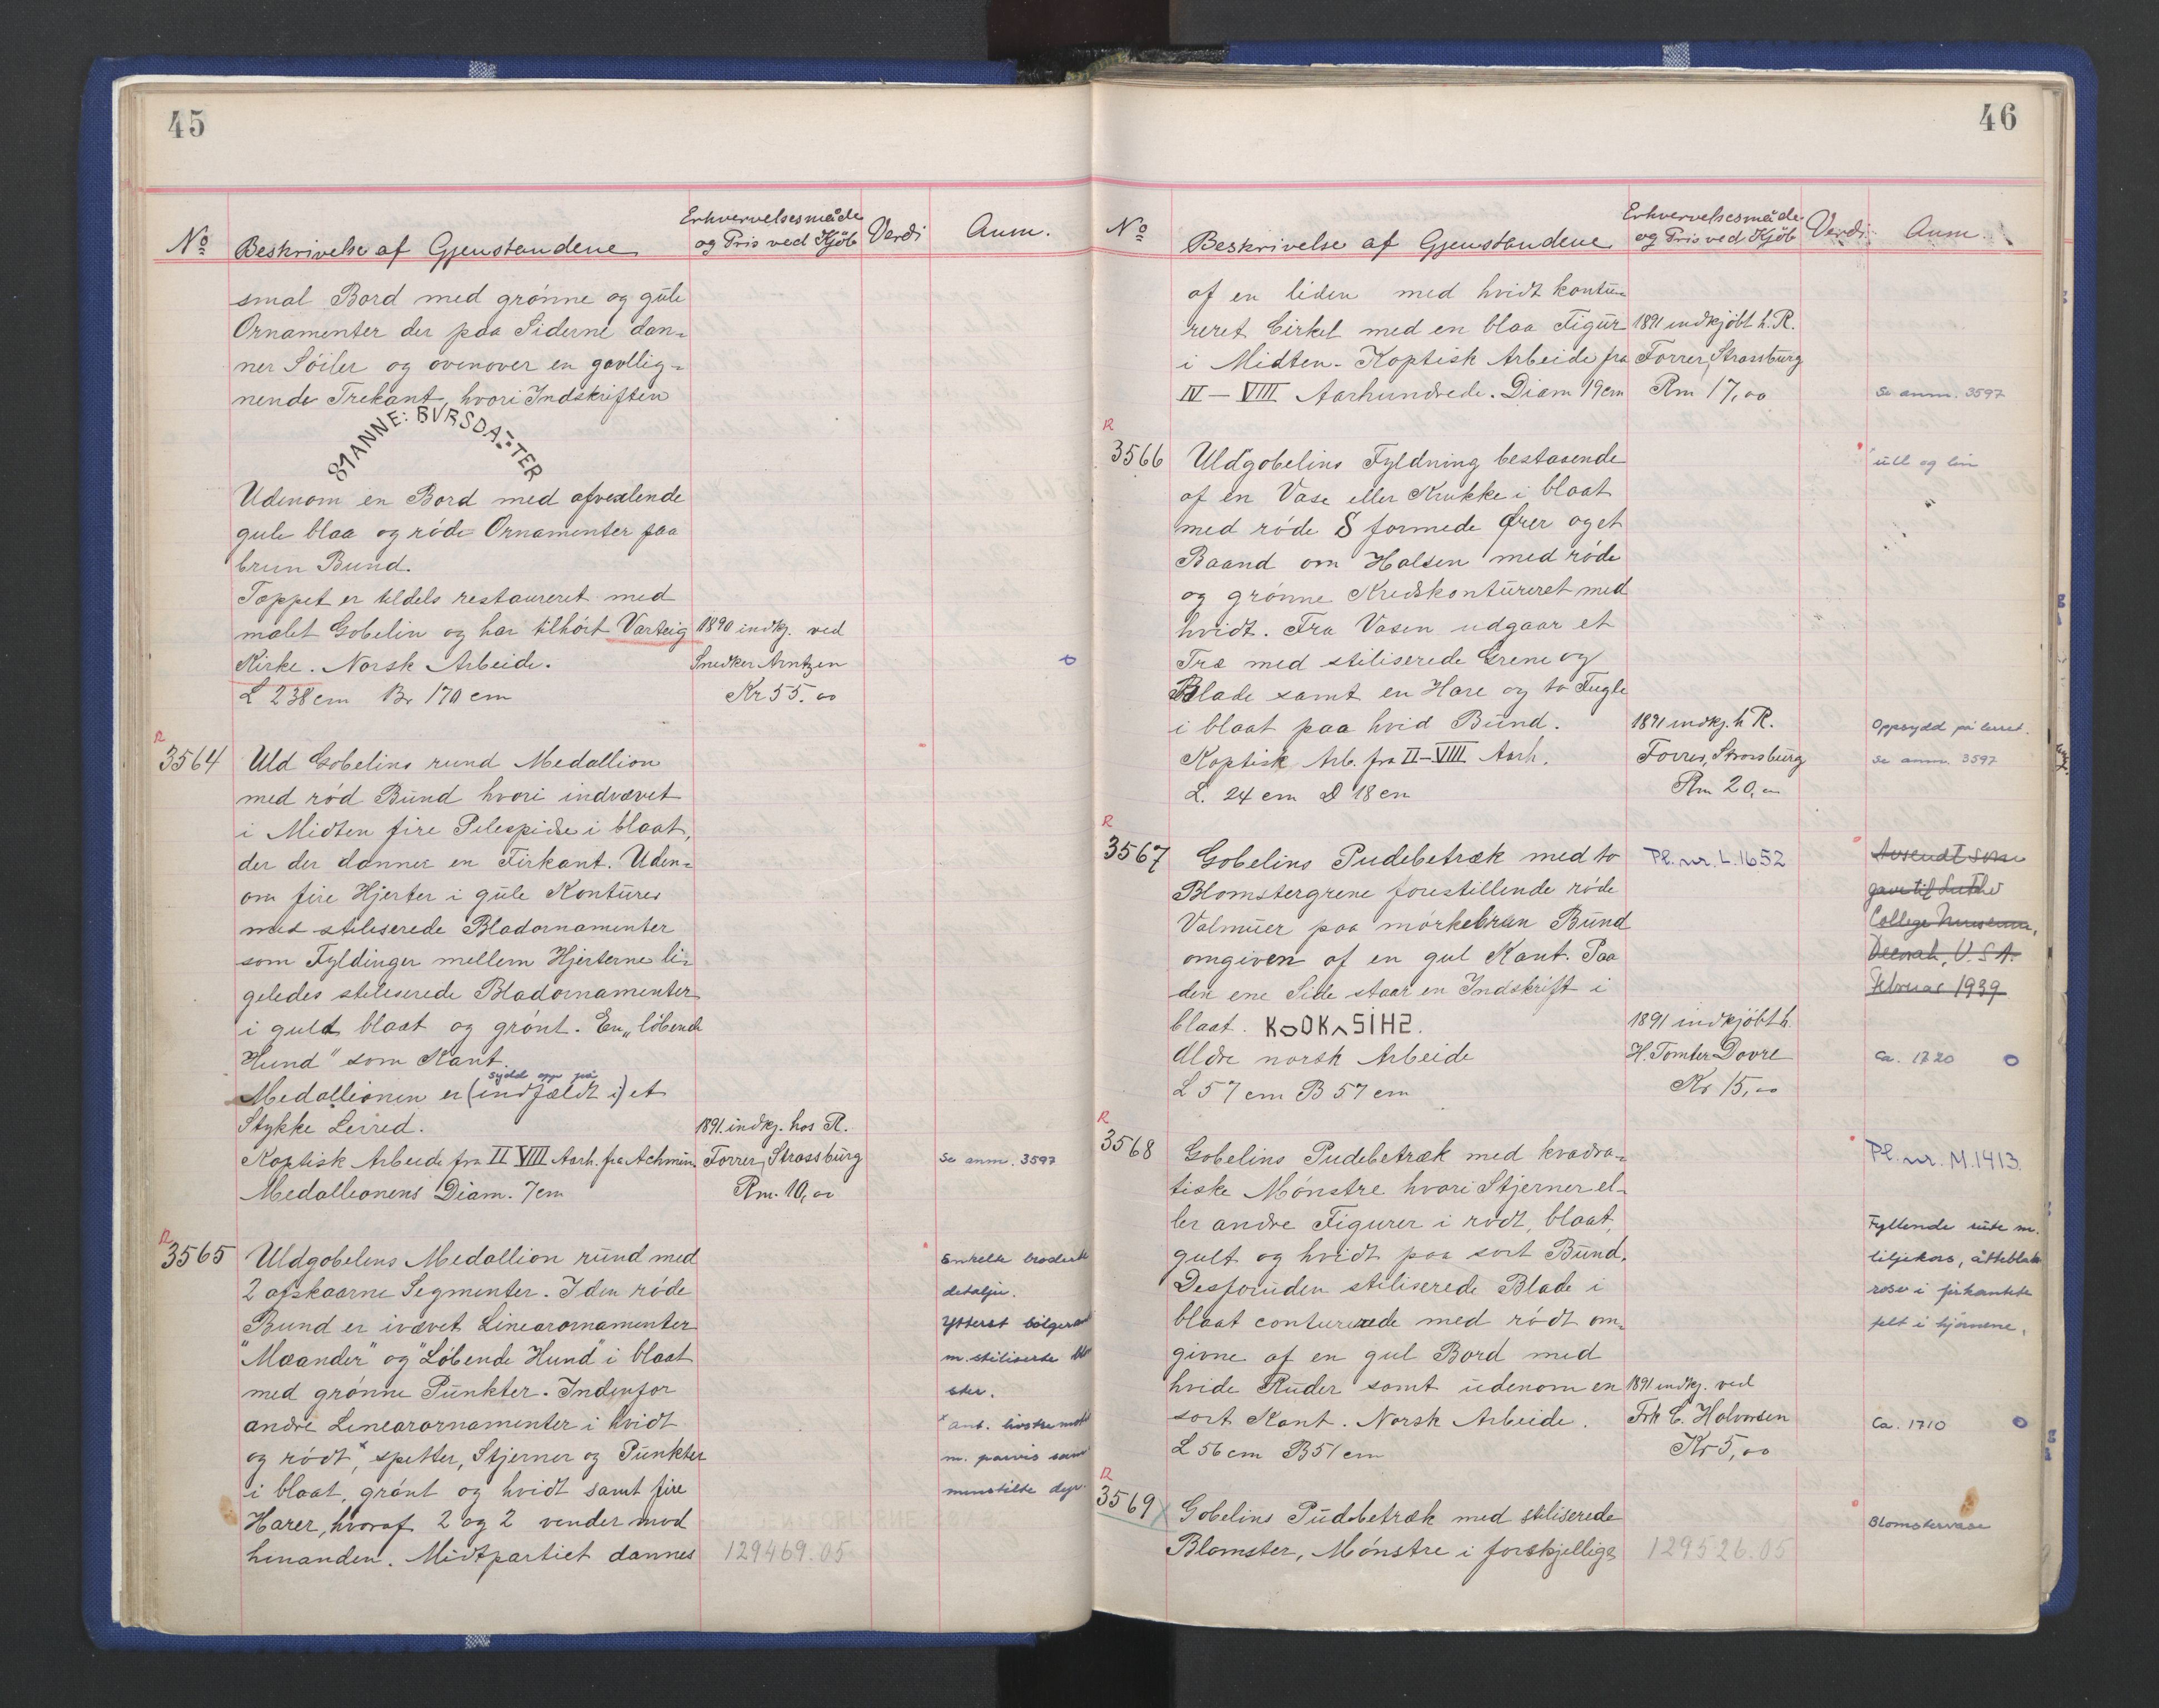 45
No
Beskrivelse af Gjenstandene
Erhvervelsesmåde
og Pris ved Kjöb
Verdi
Anm.
smal Bord med grønne og gule
Ornamenter der paa Siderne dan=
ner Söiler og ovenover en gavllig=
nende Trekant, hvori Indskriften
81 ANNE: BVRSDATTER
Udenom en Bord med afvexlende
gule blaa og røde Ornamenter paa
brun Bund.
Tæppet er tildels restaureret med
malet Gobelin og har tilhört Varteig
1890 indkj. ved
Kirke. Norsk Arbeide.
Snedker Arntzen
L 238 cm Br 170 cm
Kr 55.00
R
3564
Uld Gobelins rund Medallion
med rød Bund hvori indvævet
i Midten fire Pilespidse i blaat,
der der danner en Firkant. Uden=
om fire Hjerter i gule Konturer
med stiliserede Bladornamenter
som Fyldinger mellem Hjerterne li=
geledes stiliserede Bladornamenter
i guld blaat og grønt. En „löbende
Hund" som Kant.
sydd opp på
Medallionen er (indfældt i) et
Stykke Lerred.
1891. indkj. hos R.
Koptisk Arbeide fra II VIII Aarh. fra Achmim
Forrer, Strassburg
Se anm. 3597
Medallionens Diam. 7 cm
Rm. 10,00
R
3565
Uldgobelins Medallion rund med
Enkelte broderte
2 afskaarne Segmenter. I den røde
detaljer.
Bund er ivævet Linearornamenter
Ytterst
"Mæander" og "Löbende Hund" i blaat
m. stiliserte
med grønne Punkter. Indenfor
andre Linearornamenter i hvidt
og rødt, spetter, Stjerner og Punkter
m. parvis
i blaat, grønt og hvidt samt fire
Harer, hvoraf 2 og 2 vender mod
hinanden. Midtpartiet dannes
129469.05
46
No
Beskrivelse af Gjenstandene
Erhvervelsesmåde
og Pris ved Kjöb
Verdi
Anm.
af en liden med hvidt kontu=
reret Cirkel med en blaa Figur
1891 indkjöbt h. R.
i Midten. Koptisk Arbeide fra
Forrer, Strassburg
IV – VIII Aarhundrede. Diam 19 cm
Rm 17,00
Se anm. 3597
R
3566
Uldgobelins Fyldning bestaaende
ull og lin
af en Vase eller Krukke i blaat
med røde S formede Ører og et
Baand om Halsen med røde
og grønne Kreds kontureret med
hvidt. Fra Vasen udgaar et
Træ med stiliserede Grene og
Blade samt en Hare og to Fugle
i blaat paa hvid Bund.
1891 indkj. h R.
Oppsydd på lerret.
Koptisk Arb. fra II–VIII Aarh.
Forrer, Strassburg
Se anm. 3597
L. 24 cm B 18 cm
Rm 20,00
R
3567
Gobelins Pudebetræk med to
Pl. nr. L.1652
Avsendt som
Blomstergrene forestillende røde
gave til Luther
Valmuer paa mørkebrun Bund
College Museum,
omgiven af en gul Kant. Paa
Decorah, U.S.A.
den ene Side staar en Indskrift i
Februar 1939
blaat.
1891 indkjöbt h.
Ældre norsk Arbeide
H. Tomter Dovre
Ca. 1720
L 57 cm B 57 cm
Kr 15,00
R
3568
Gobelins Pudebetræk med kvadra=
Pl. nr. M.1413.
tiske Mønstre hvori Stjerner el=
ler andre Figurer i rødt, blaat,
Fyllende rute m.
gult og hvidt paa sort Bund.
liljekors, åtteblads
Desforuden stiliserede Blade i
roser i firkantete
blaat conturerede med rødt om=
felt i hjørnene.
givne af en gul Bord med
hvide Ruder samt udenom en
1891 indkj. ved
sort Kant. Norsk Arbeide.
Frk C. Halvorsen
Ca. 1710
L 56 cm B 51 cm
Kr 5,00
R
3569
Gobelins Pudebetræk med stiliserede
Blomstervase
Blomster, Mønstre i forskjellige
129526.05